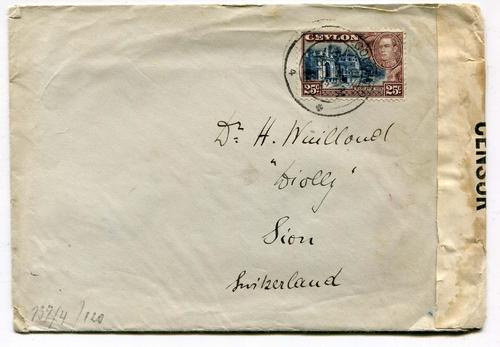 CEYLON
25c. 25c.
Dr H. Wuilloud
"Diolly"
Sion
Switzerland
CENSOR
737/4/120